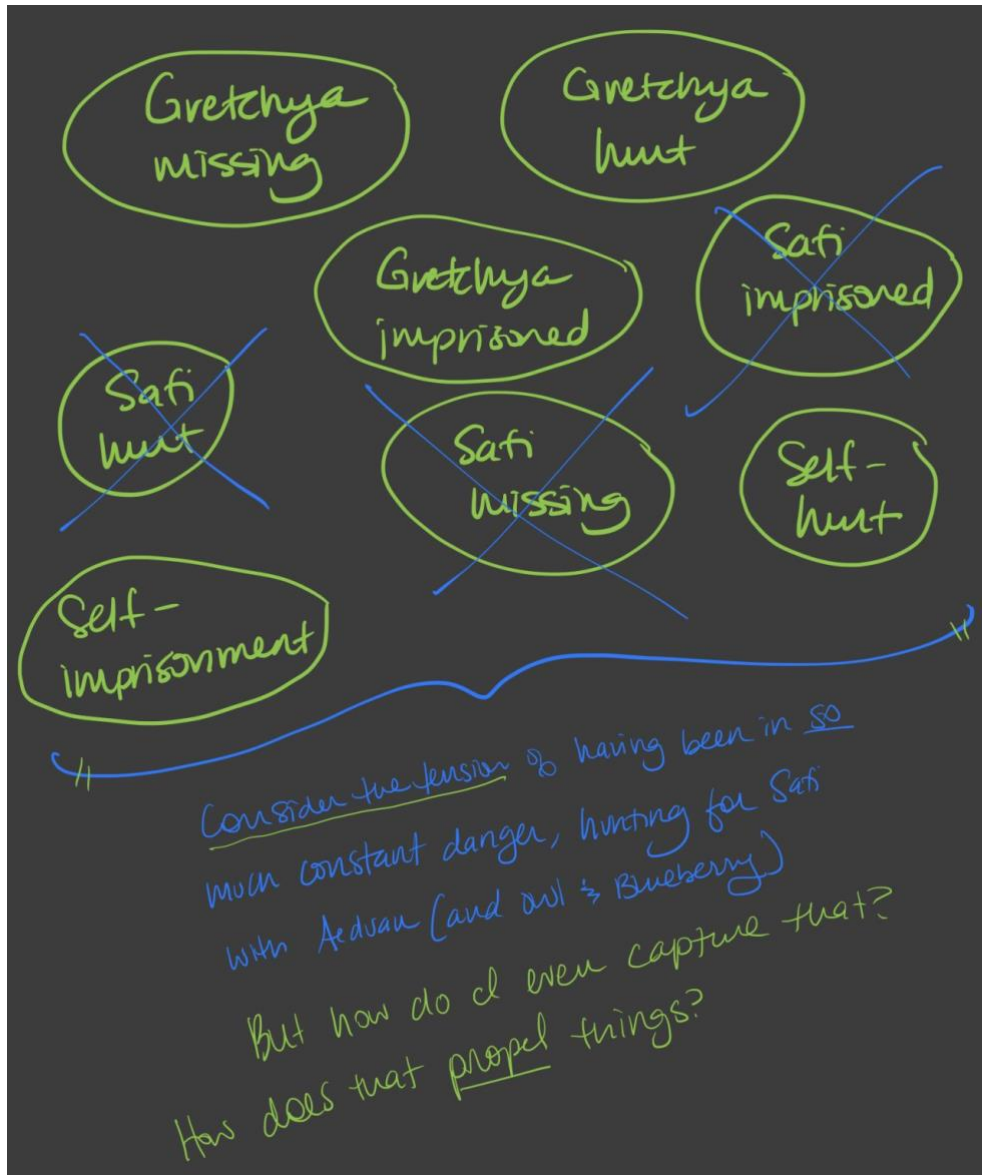 Gretchya
missing
Gretchya
hurt
Safi
imprisoned
Gretchya
imprisoned
Safi
hurt
Safi
missing
Self-
hurt
Self-
imprisonment
Consider the tension of having been in so
much constant danger, hunting for Safi
with Aeduan (and owl & Blueberry)
But how do I even capture that?
How does that propel things?